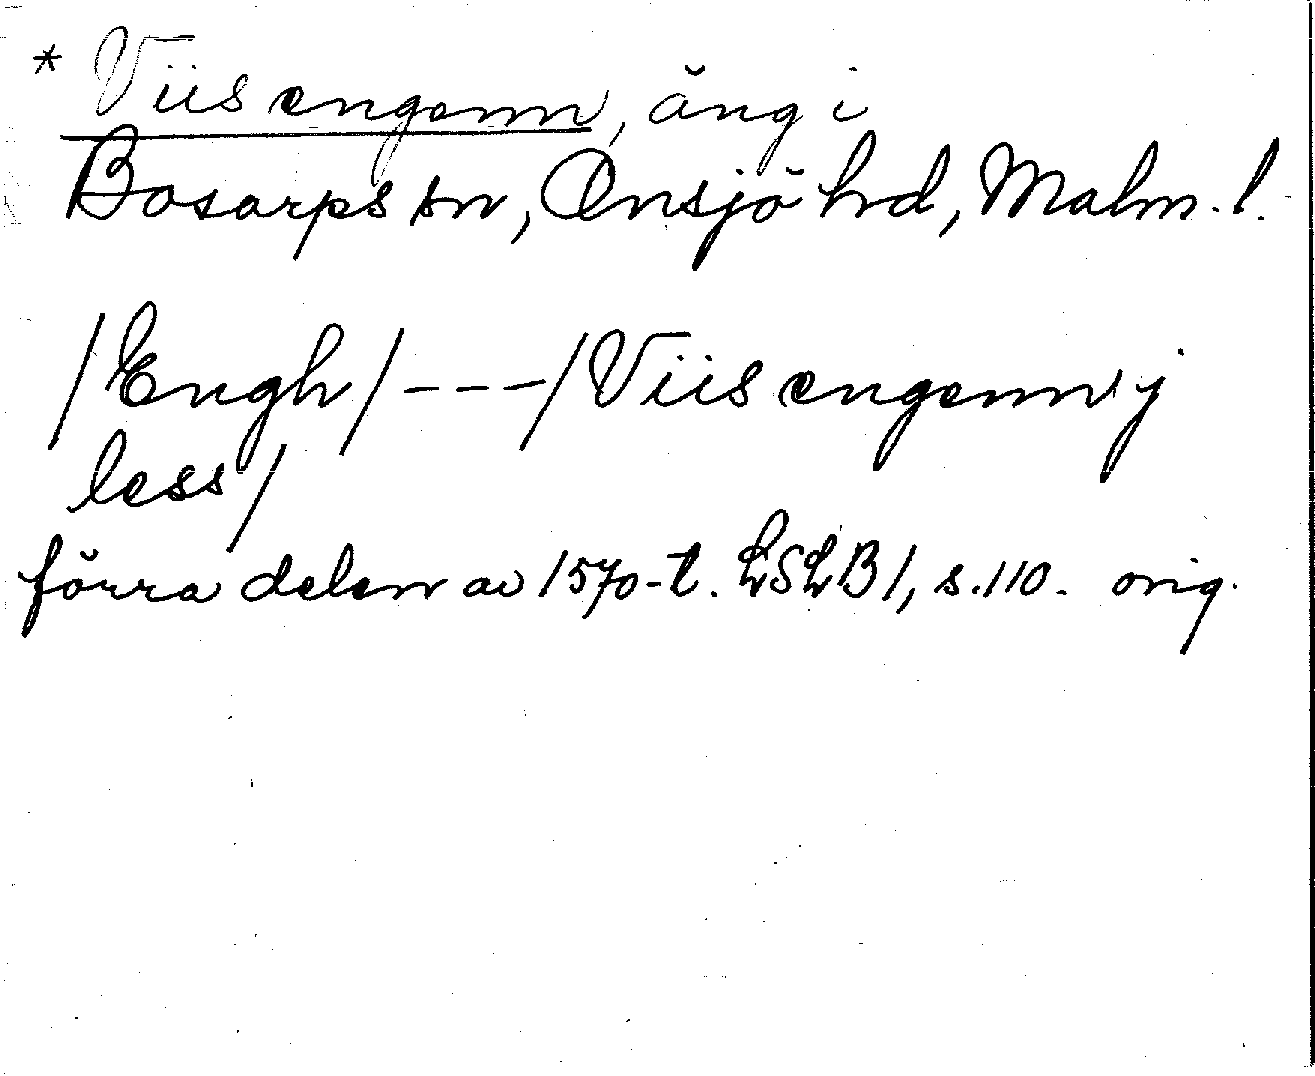 * Viis engenn, äng i
Bosarps sn, Onsjö hd, Malm. l.
/Engh/---/Viis engenn j
less/
förra delen av 1570-t. LSLB 1, s. 110. orig.